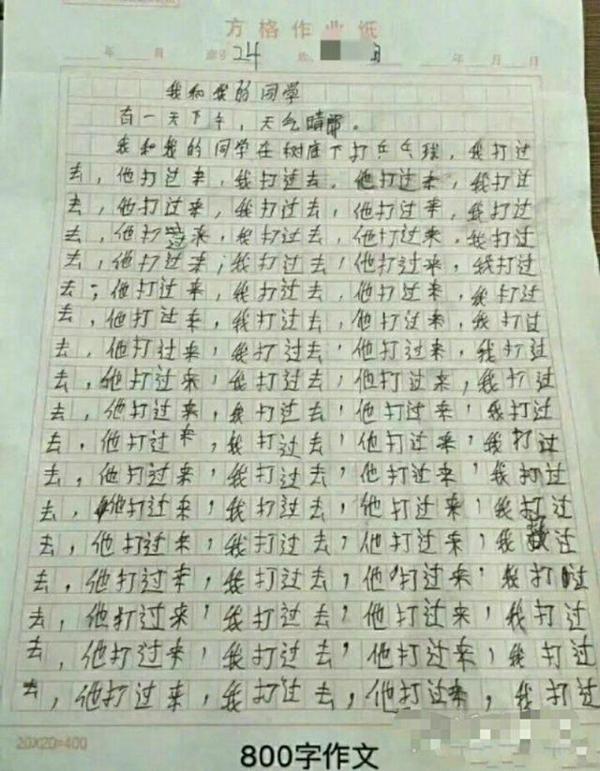 方格作业纸
年 月 24 年 月 日
我和我的同学
有一天下午，天气晴朗。
我和我的同学在树底下打乒乓球，我打过
去，他打过来，我打过去，他打过来，我打过
去，他打过来，我打过去，他打过来，我打过
去，他打过来，我打过去，他打过来，我打过
去，他打过来，我打过去，他打过来，我打过
去，他打过来，我打过去，他打过来，我打过
去，他打过来，我打过去，他打过来，我打过
去，他打过来，我打过去，他打过来，我打过
去，他打过来，我打过去，他打过来，我打过
去，他打过来，我打过去，他打过来，我打过
去，他打过来，我打过去，他打过来，我打过
去，他打过来，我打过去，他打过来，我打过
去，他打过来，我打过去，他打过来，我打过
去，他打过来，我打过去，他打过来，我过
去，他打过来，我打过去，他打过来，我打过
去，他打过来，我打过去，他打过来，我打过
去，他打过来，我打过去，他打过来，我打过
去，他打过来，我打过去，他打过来，我打过
20X20=400
800字作文